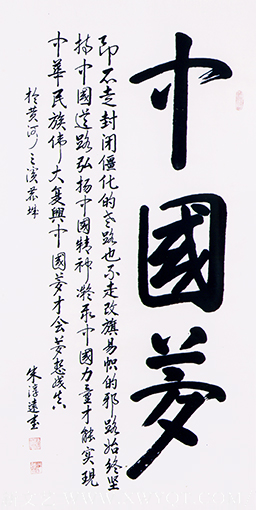 中國夢
即不走封闭僵化的老路也不走改旗易帜的邪路始终坚
持中國道路弘扬中國精神凝聚中國力量才能实现
中華民族伟大复興中國梦才会梦想成真
於黄河之滨